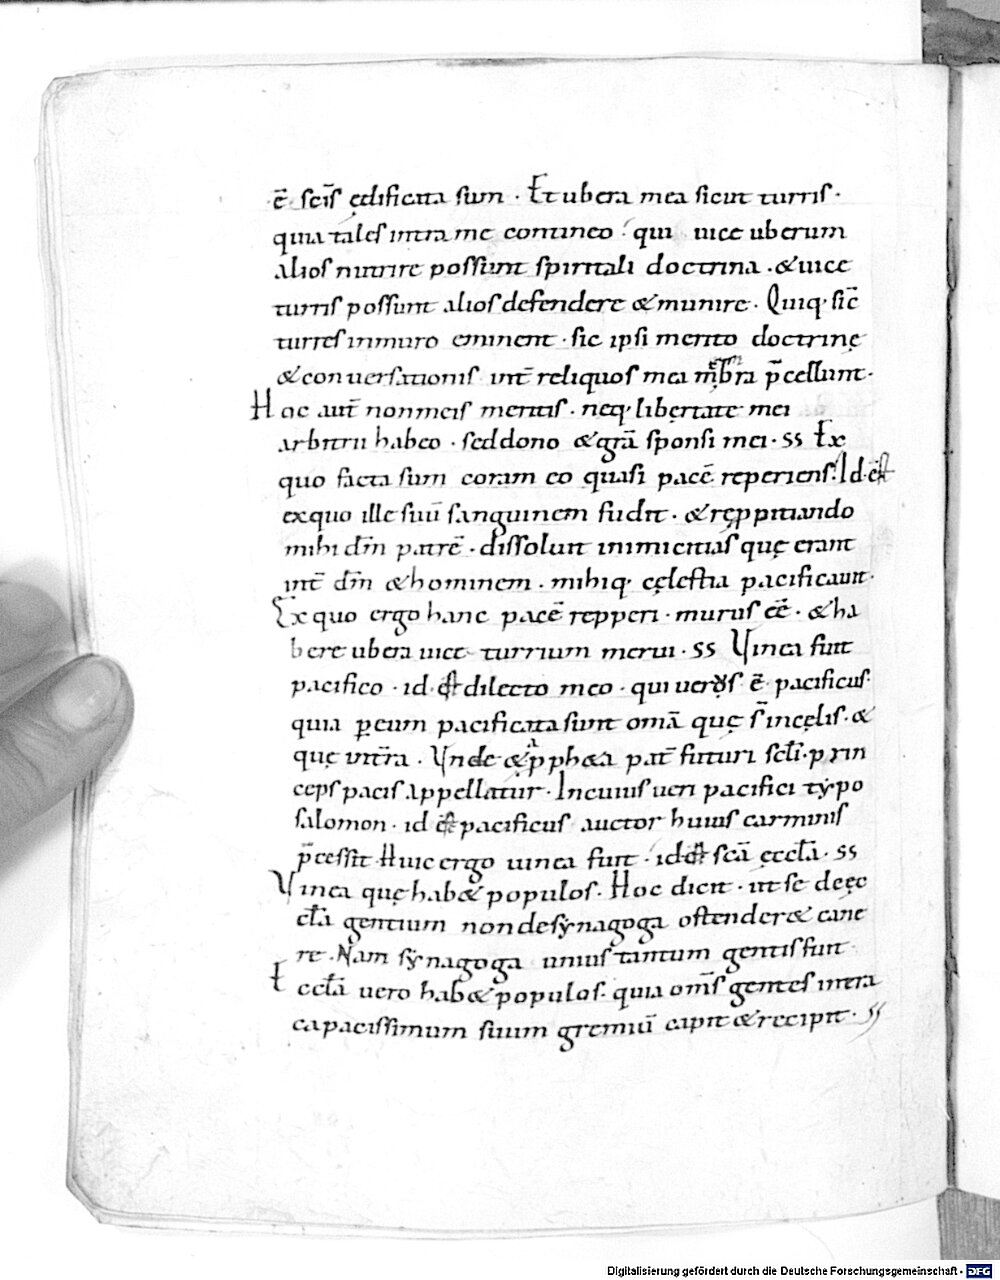 ē· scīs ędificata sum · Et ubera mea sicut turris ·
quia tales intra me contineo · qui uice uberum
alios nutrire possunt spiritali doctrina · & uice
turris possunt alios defendere & munire · Quiq· sic̄
turres in muro eminent · sic ipsi merito doctrinę
& conuersationis int̄ reliquos mea mēbra p̄cellunt ·
Hoc aut̄ non meis meritis · neq· libertate mei
arbitrii habeo · sed dono & grā sponsi mei · ss Ex
quo facta sum coram eo quasi pacē reperiens · Id· est
ex quo ille suū sanguinem fudit · & rep̄pitiando
mihi dm̄ patrē · dissoluit inimicitias quę erant
int̄ dm̄ & hominem · mihiq· cęlestia pacificauit ·
Ex quo ergo hanc pacē repperi · murus eē · & ha
bere ubera uice turrium merui · ss Vinea fuit
pacifico · id · est dilecto meo · qui uerus ē pacificus
quia p eum pacificata sunt omā quę s̄ in cęlis · &
quę in tr̄ra · Vnde & p̄ pph&a pat̄ futuri scl̄i · prin
ceps pacis appellatur · In cuius ueri pacifici typo
salomon · id est pacificus auctor huius carminis
p̄cessit Huic ergo uinea fuit · id est scā ęccl̄a · ss
Vinea quę hab& populos · Hoc dicit · ut se de ęc
cl̄a gentium non de synagoga ostender& cane
re · Nam synagoga unius tantum gentis fuit
Eccl̄a uero hab& populos · quia om̄s gentes intra
capacissimum suum gremiū capit & recipit · ss
Digitalisierung gefördert durch die Deutsche Forschungsgemeinschaft - DFG